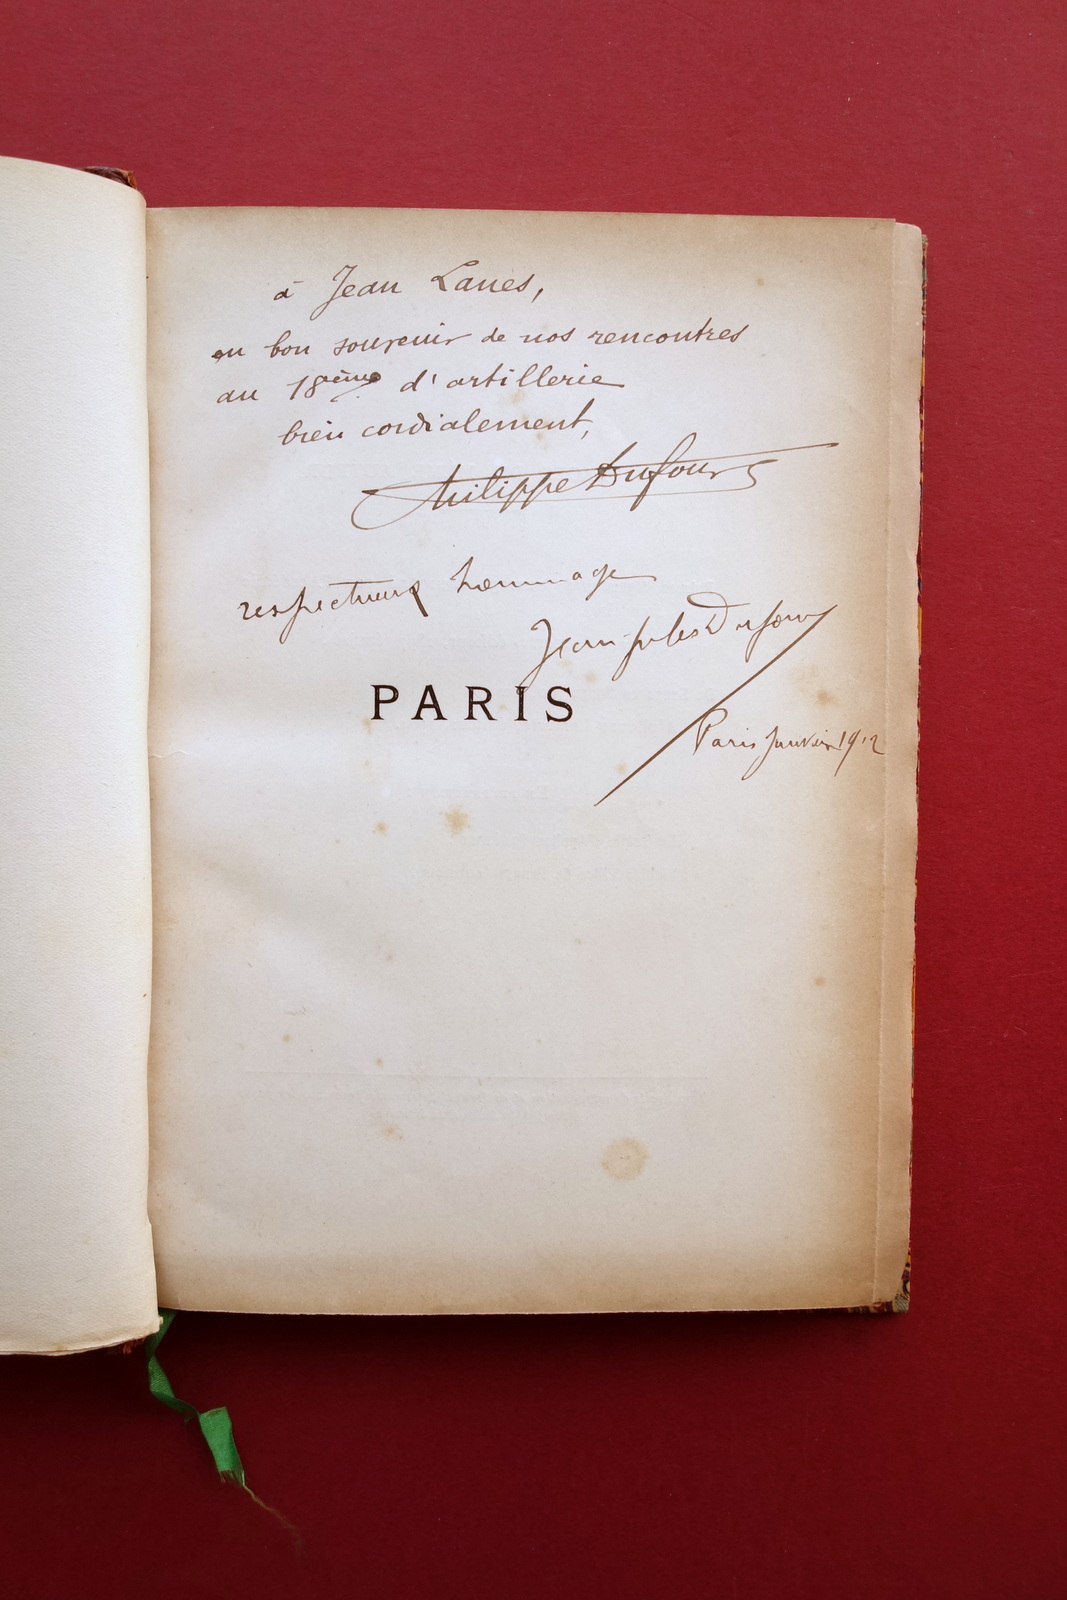 à Jean Lanes,
en bon souvenir de nos rencontres
au 18ème d'artillerie
bien cordialement,
Philippe Dufour
respectueux hommage
Jean-Jules Dufour
PARIS
Paris Janvier 1912